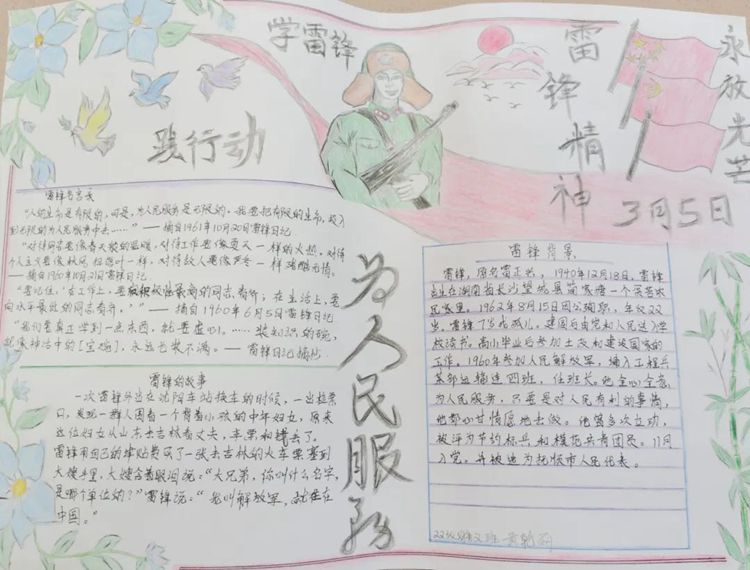 学雷锋
践行动
雷锋精神
永放光芒
3月5日
为人民服务
雷锋名言
“人的生命是有限的,可是,为人民服务是无限的,我要把有限的生命,投入
到无限的为人民服务中去……” —— 摘自1961年10月20日雷锋日记
“对待同志要像春天般的温暖,对待工作要像夏天一样的火热,对待
个人主义要像秋风扫落叶一样,对待敌人要像严冬一样残酷无情。
—— 摘自1960年10月21日雷锋日记
“要记住,‘在工作上,要向积极性最高的同志看齐;在生活上,要
向水平最低的同志看齐。’” —— 摘自1960年6月5日雷锋日记
“我们要真正学到一点东西,就要虚心。……装知识的碗,
就像神话中的[宝碗],永远也装不满。 —— 雷锋日记摘抄
雷锋的故事
一次雷锋外出在沈阳车站换车的时候,一出检票
口,发现一群人围着一个背着小孩的中年妇女,原来
这位妇女从山东去吉林看丈夫,车票和钱丢了。
雷锋用自己的津贴费买了一张去吉林的火车票塞到
大嫂手里,大嫂含着眼泪说:“大兄弟,你叫什么名字,
是哪个单位的?”雷锋说:“我叫解放军,就住在
中国。”
雷锋背景
雷锋,原名雷正兴,1940年12月18日,雷锋
出生在湖南省长沙望城县简家塘一个贫苦农
民家里。1962年8月15日因公殉职,年仅22
岁。雷锋7岁成孤儿,建国后由党和人民送入学
校读书。高小毕业后参加土改和建设国家的
工作。1960年参加人民解放军,编入工程兵
某部运输连四班,任班长。他全心全意
为人民服务,只要是对人民有利的事情,
他都心甘情愿地去做。他曾多次立功,
被评为节约标兵和模范共青团员。11月
入党,并被选为抚顺市人民代表。